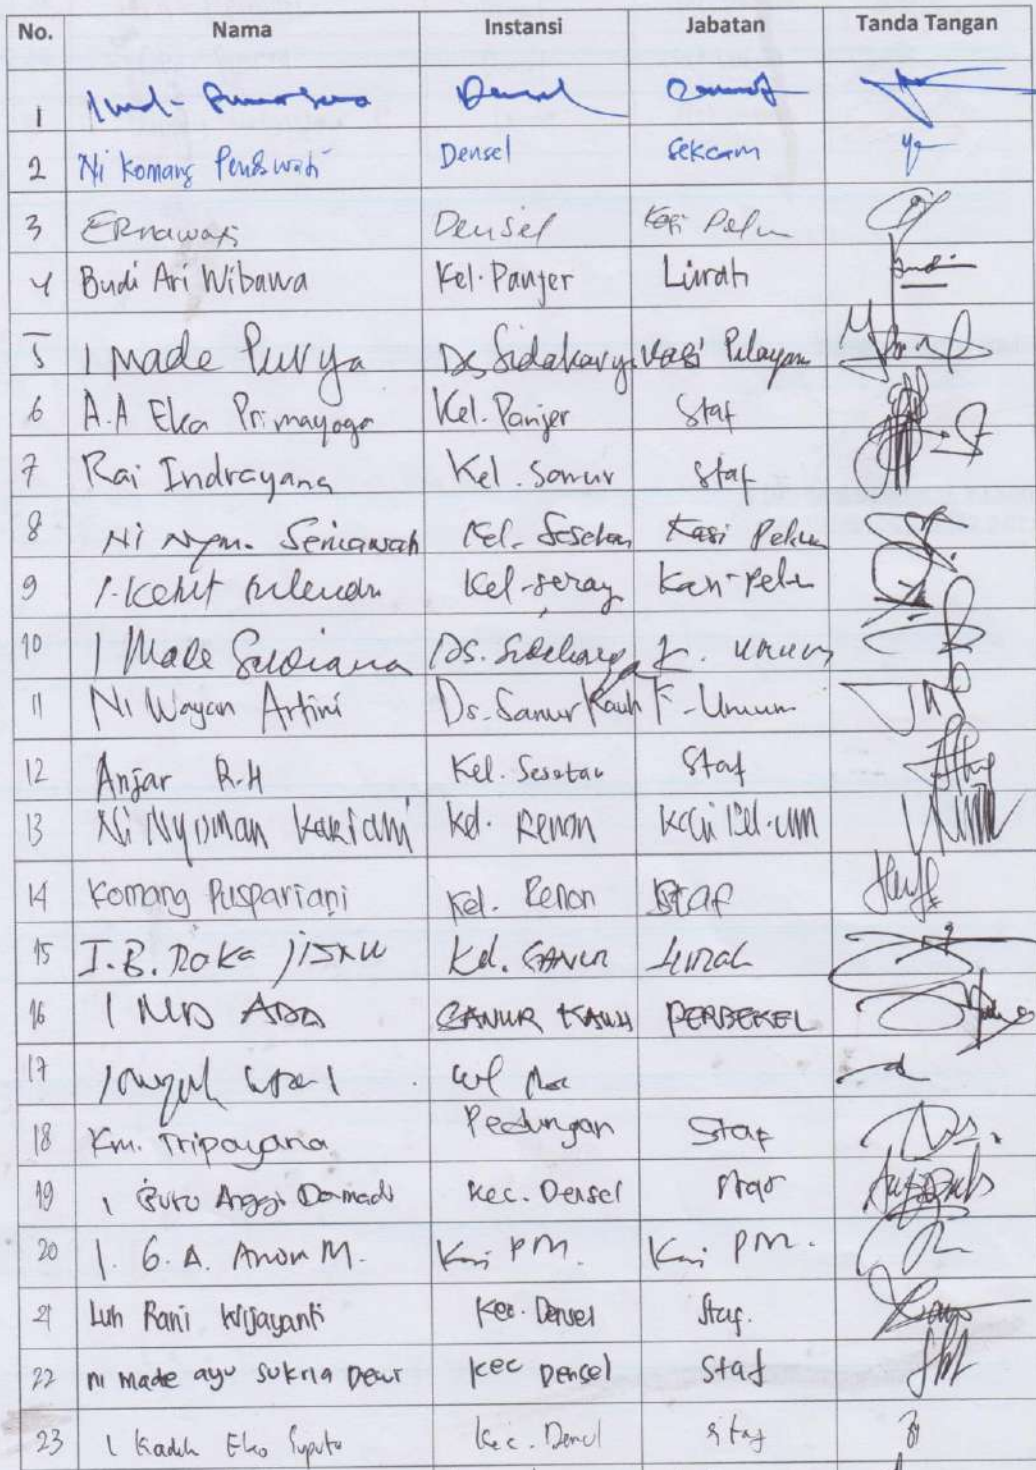 No. Nama Instansi Jabatan Tanda Tangan
1 Densel
2 Ni Komang Densel Sekcam
3 ERnawati Densel Kasi Pelum
4 Budi Ari Wibawa Kel. Panjer Lurah
5 I Made Purya Ds Sidakarya Kasi Pelayan
6 A.A Eka Primayoga Kel. Panjer Staf
7 Rai Indrayana Kel. Sanur Staf
8 Ni Nym. Seniawati Kel. Sesetan Kasi Pelum
9 I. Ketut Kel. Kasi Pelum
10 I Made Sudiana Ds. Sidakarya K. Umum
11 Ni Wayan Artini Ds. Sanur Kauh K. Umum
12 Anjar R.H Kel. Sesetan Staf
13 Ni Nyoman Kariani Kel. Renon Kasi Pel. um
14 Komang Puspariani Kel. Renon Staf
15 I.B. Kel. SANUR LURAH
16 I MD ADA SANUR KAUH PERBEKEL
17
18 Km. Tripayana Pedungan Staf
19 I Putu Anggi Damadi Kec. Densel Staf
20 I. G. A. Anom M. Kasi PM. Kasi PM.
21 Luh Rani Wijayanti Kec. Densel Staf.
22 ni made ayu sukria Dewi Kec Densel Staf
23 I Kadek Eko Saputra Kec. Densel Staf